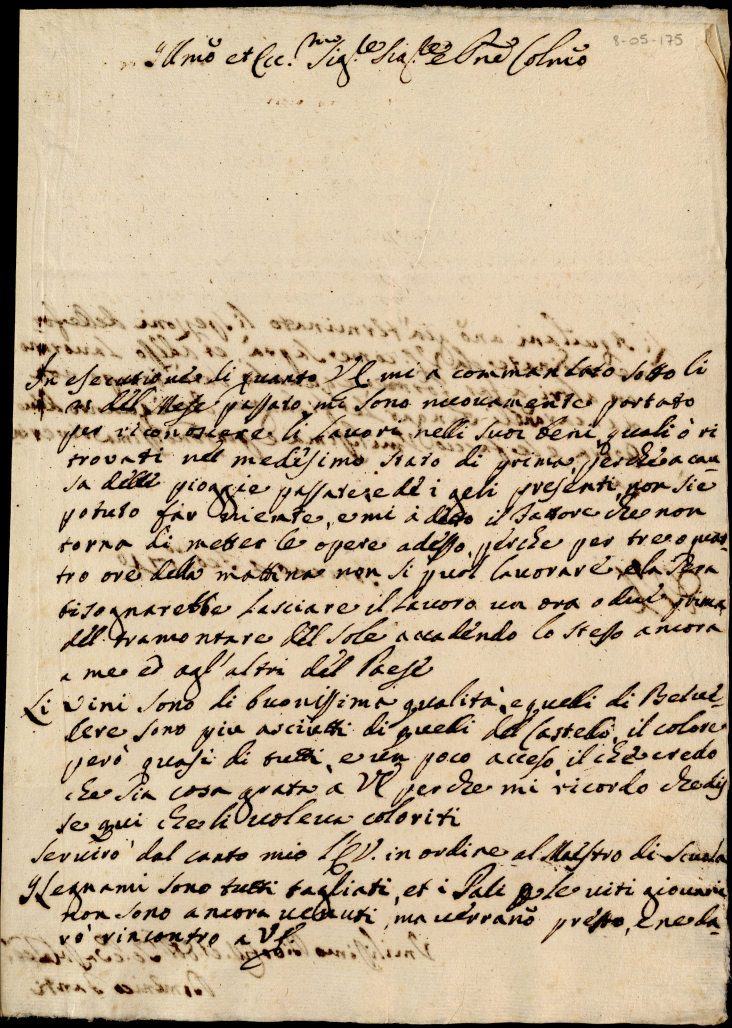 8-05-175
Illmo et Ecc.mo Sig.re Sig.re e Pne Colmo
In esecutione di quanto VE mi a commandato sotto li
del Mese passato, mi sono nuovamente portato
per riconoscere li Lavori nelli suoi beni, quali ò ri
trovati nel medesimo stato di prima, perche a cau
sa delle pioggie passate, e dè i geli presenti, non sie
potuto far niente, e mi à detto il Fattore che non
torna di metter le opere adesso, perche per tre o quat-
tro ore della mattina non si puol lavorare, e la Sera
bisognarebbe lasciare il Lavoro un ora o due prima
del tramontare del Sole accadendo lo stesso ancora
a me ed agl'altri del Paese
Li Vini sono di buonissima qualità, e quelli di Belve-
dere sono piu asciutti di quelli del Castello, il colore
però quasi di tutti, e un poco acceso il che credo
che Sia cosa grata à VE perche mi ricordo che dis
se qui che li voleva coloriti
Servirò dal canto mio l'E.V. in ordine al Maestro di Scuola
I Legnami sono tutti tagliati, et i Pali p le viti giovani
non sono ancora venuti, ma verranno presto, e ne da-
rò rincontro a VE